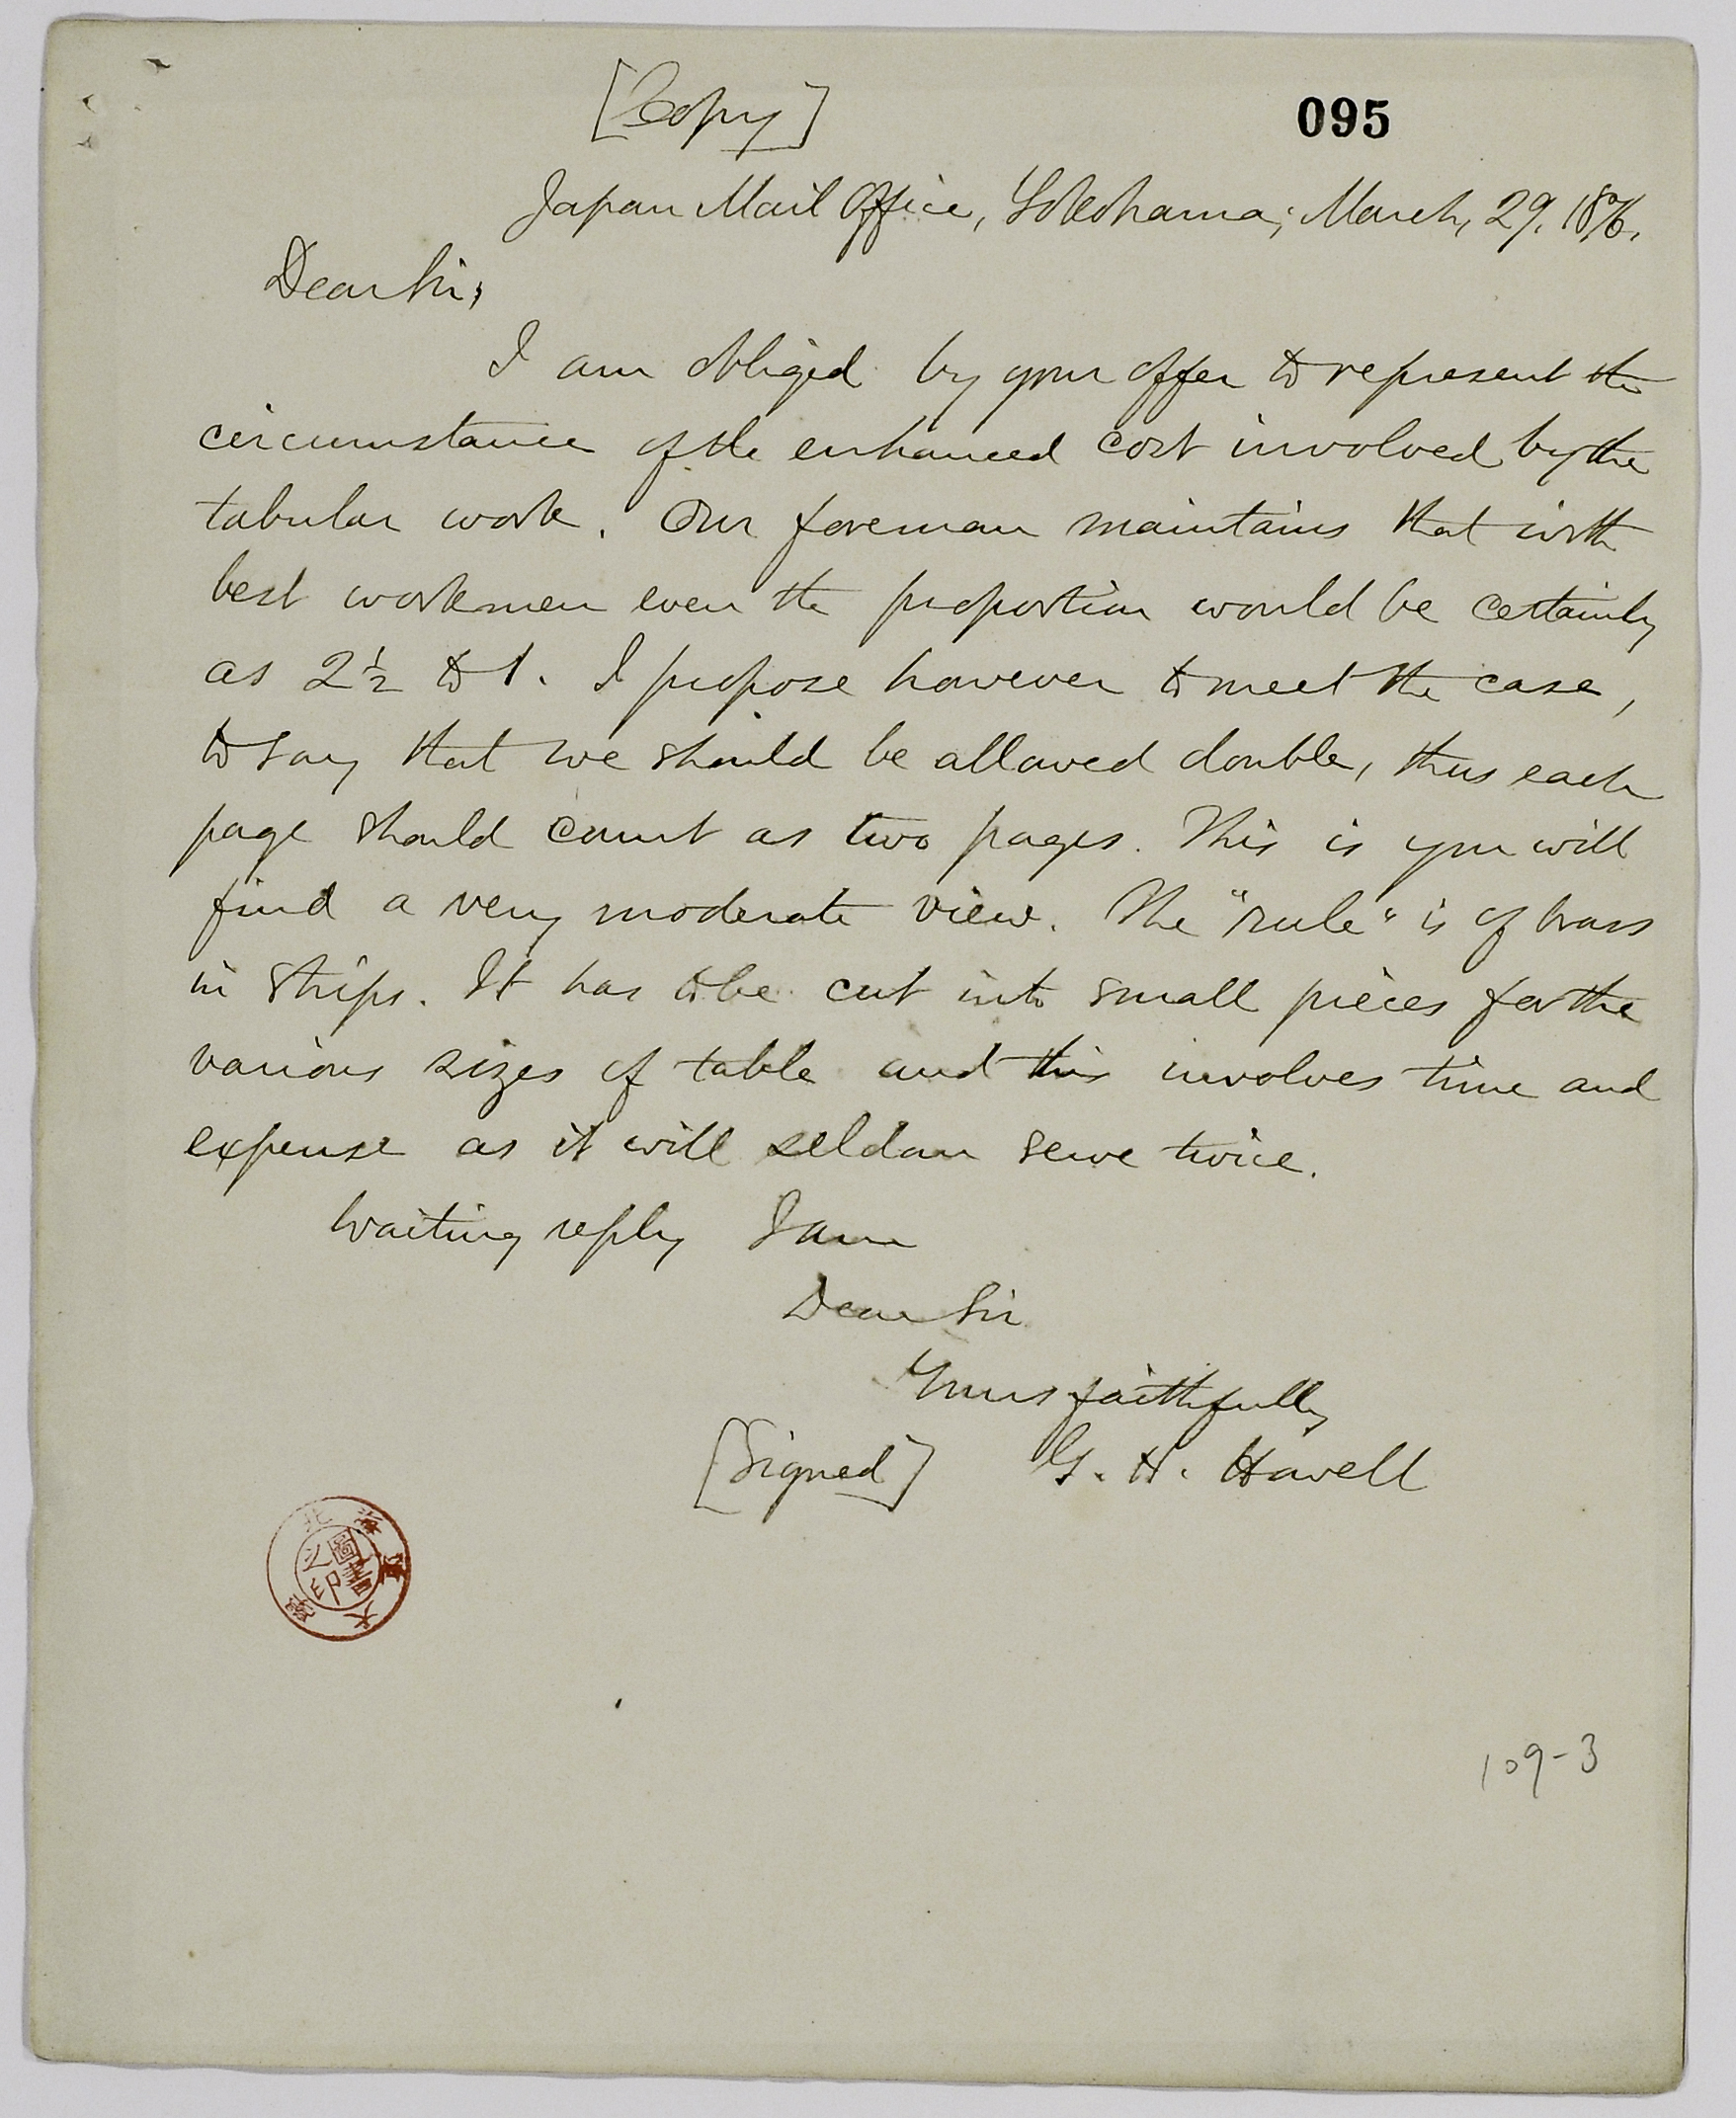 [Copy]
095
Japan Mail Office, Yokohama; March, 29, 1876.
Dear Sir;
I am obliged by your offer to represent the
circumstance of the enhanced cost involved by the
tabular work. Our foreman maintains that with
best workmen even the proportion would be certainly
as 2½ to 1. I propose however to meet the case,
to say that we should be allowed double, thus each
page should count as two pages. This is you will
find a very moderate view. The "rule" is of brass
in strips. It has to be cut into small pieces for the
various sizes of table and this involves time and
expense as it will seldom serve twice.
Waiting reply I am
Dear Sir
Yours faithfully
[Signed] G. H. Howell
北海道大學
圖書之印
109-3